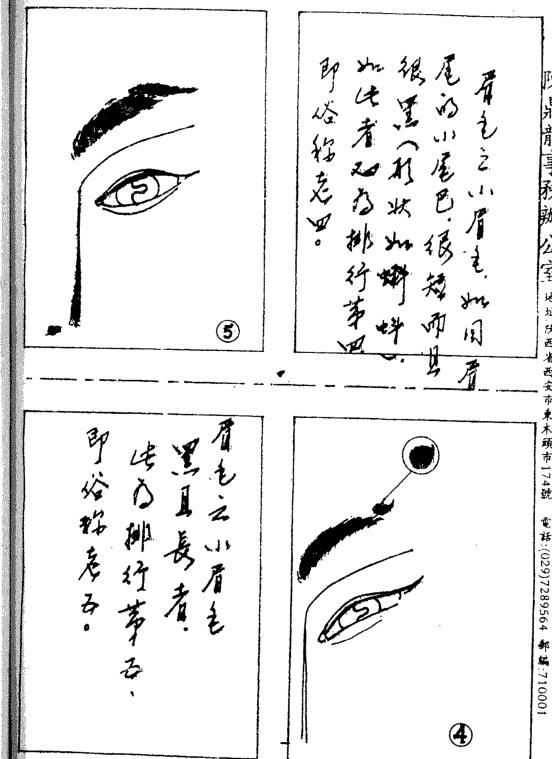 陳鼎龍事務辦公室 地址陝西省西安市東木頭市174號 電話:(029)7289564 郵編:710001
眉毛之小眉毛，如同眉
尾的小尾巴，很短而且
很黑（形狀如蝌蚪），
如此者為排行第四
即俗称老四。
⑤
④
眉毛之小眉毛
黑且長者，
此为排行第五、
即俗称老五。